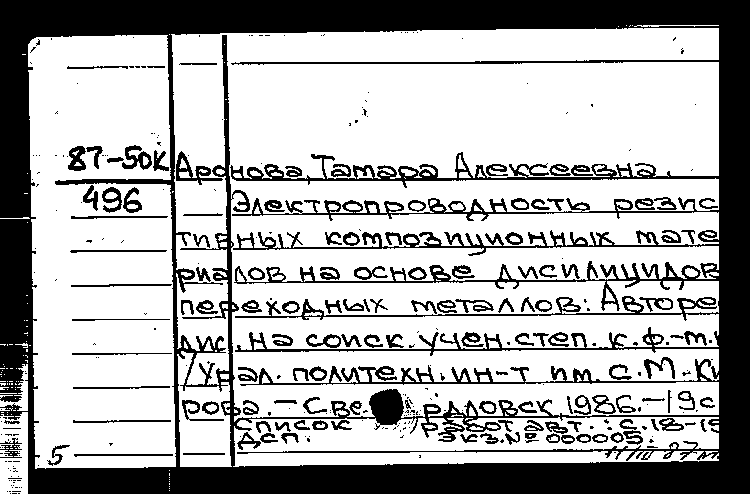 87-50К
496
Аронова, Тамара Алексеевна.
Электропроводность резис
тивных композиционных мате
риалов на основе дисилицидов
переходных металлов: Авторе
дис. на соиск. учен. степ. к.ф.-м.
/Урал. политехн. ин-т им. С.М. Ки
рова. - Свердловск, 1986. - 19 с
Список работ авт.: с. 18-19
Дсп. Экз. № 000005.
5